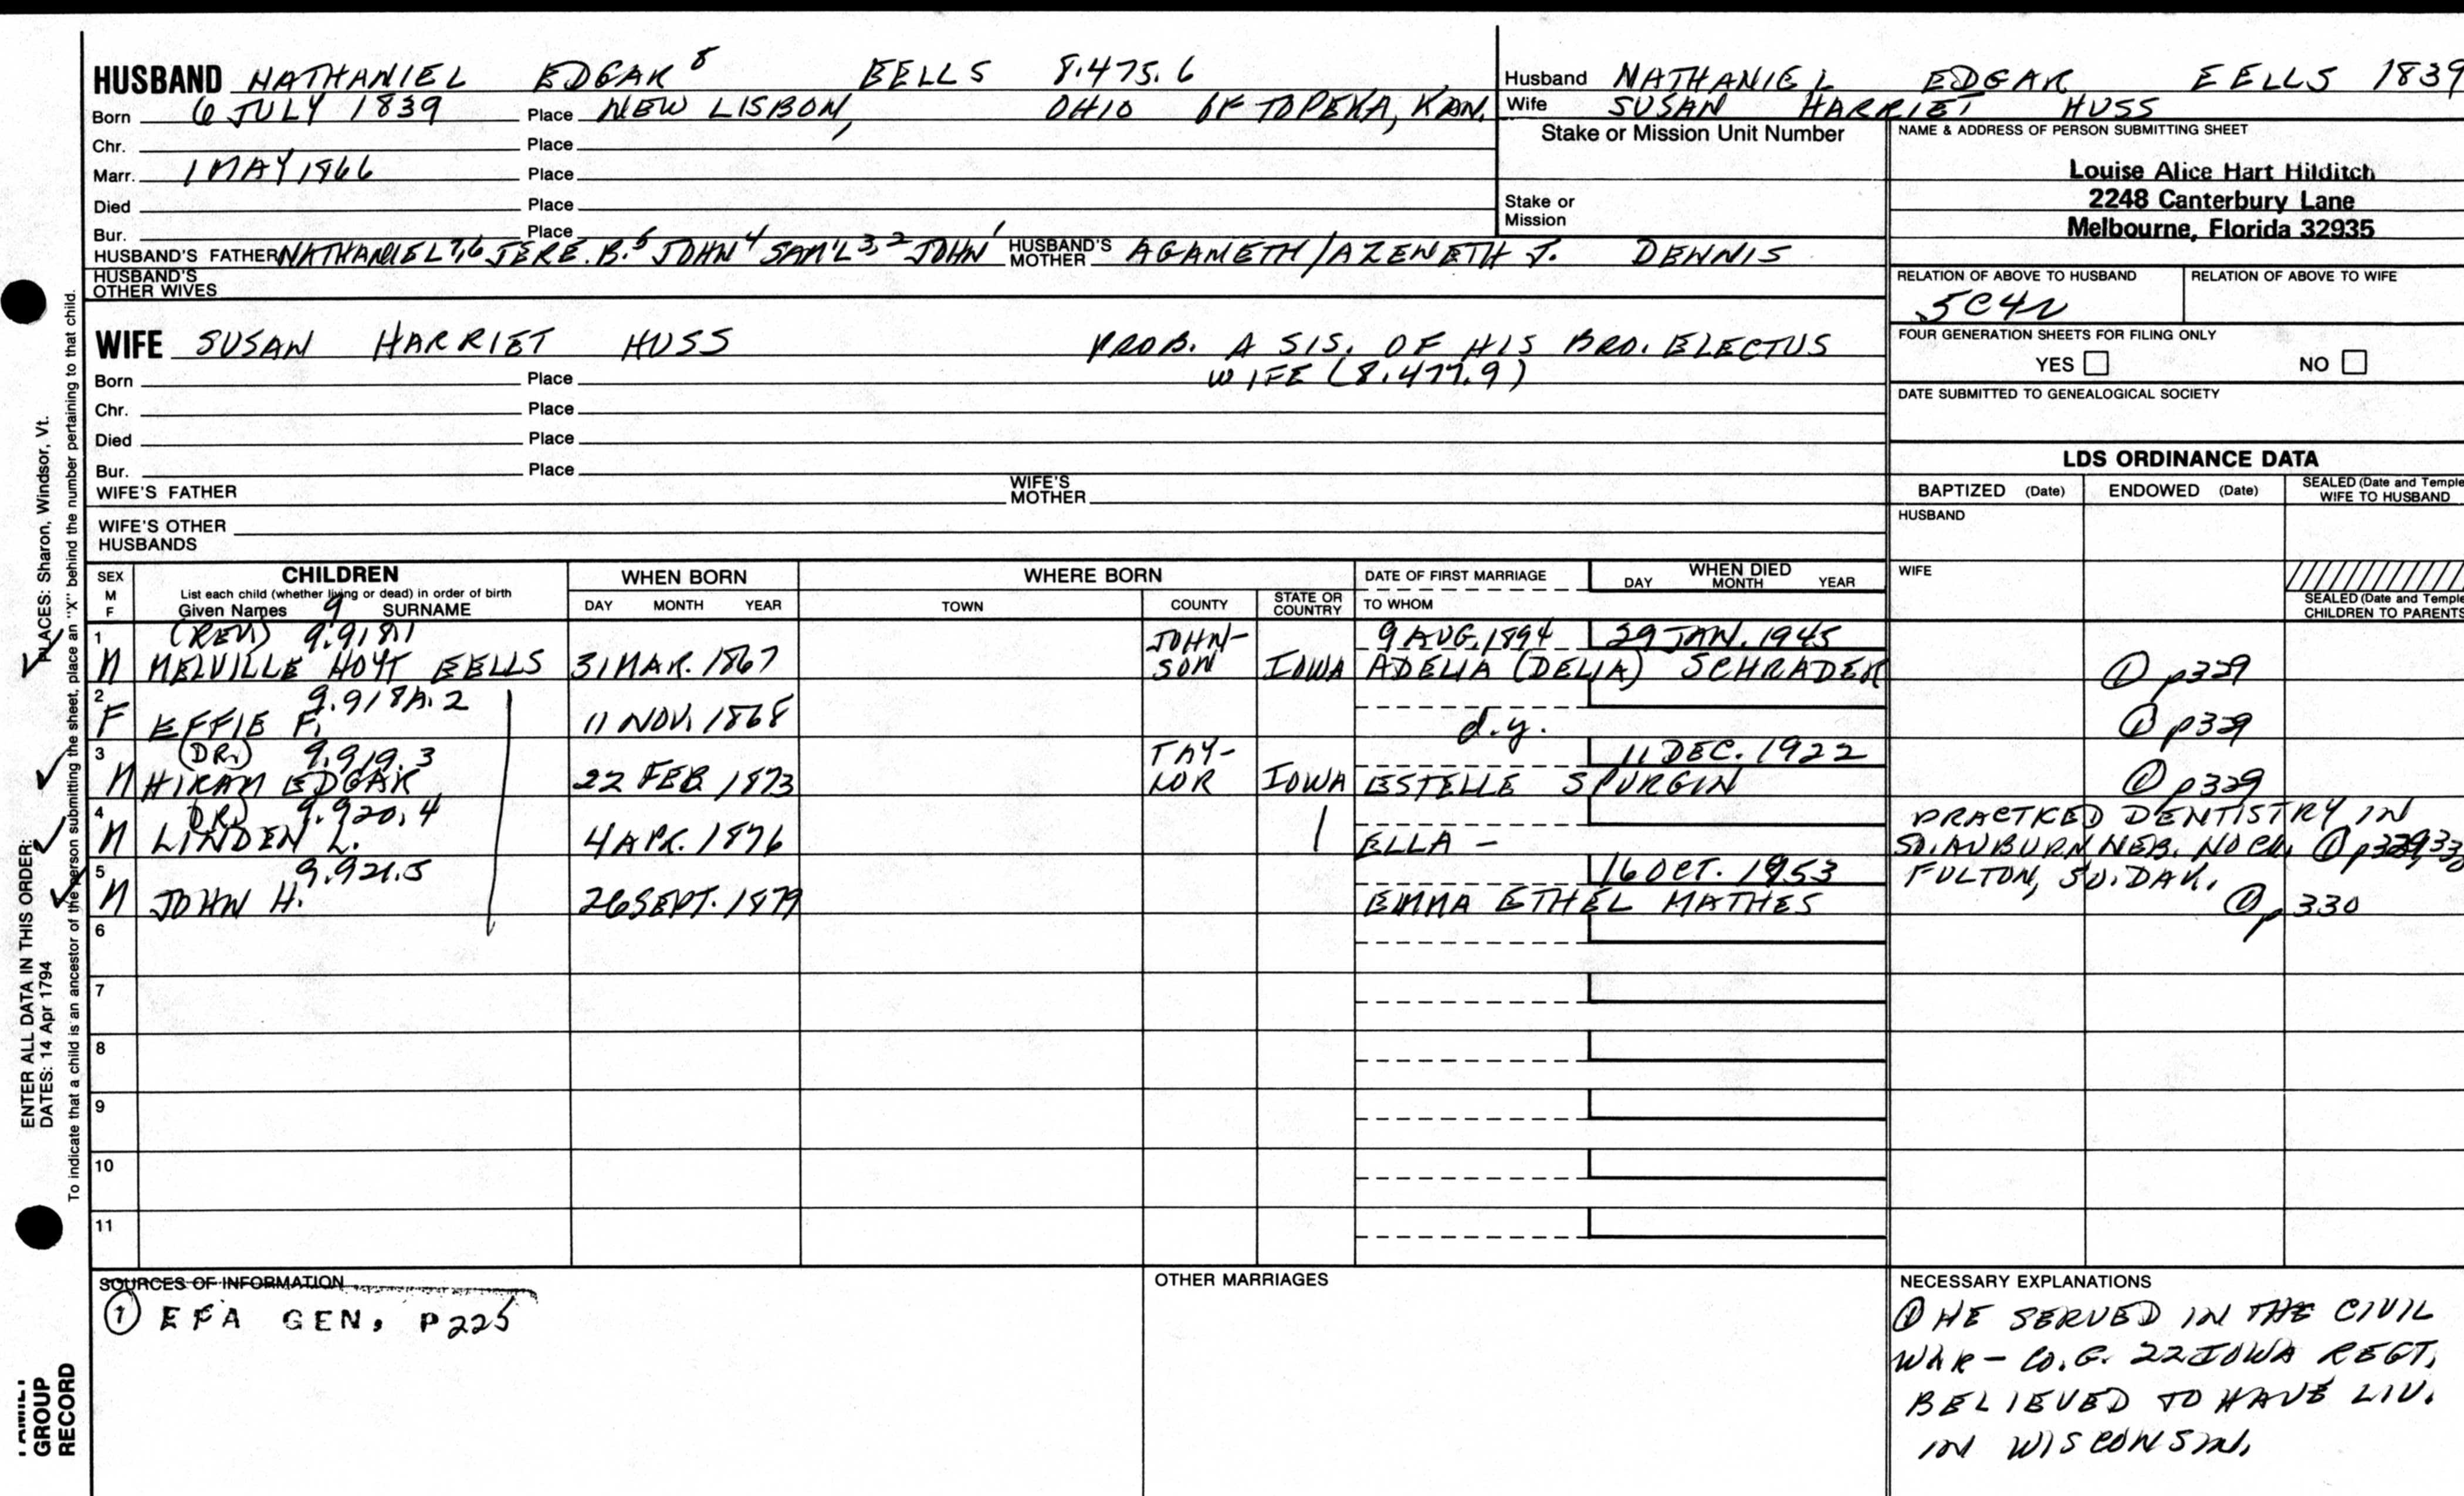 HUSBAND NATHANIEL EDGAR 8 EELLS 8.475.6
Born 6 JULY 1839 Place NEW LISBON, OHIO OF TOPEKA, KAN.
Chr. Place
Marr. 1 MAY 1866 Place
Died Place
Bur. Place
HUSBAND'S FATHER NATHANIEL 7,6 JERE. B.5 JOHN 4 SAM'L 3,2 JOHN 1 HUSBAND'S MOTHER AGAMETH/AZENETH J. DENNIS
HUSBAND'S OTHER WIVES
Husband NATHANIEL EDGAR EELLS 1839
Wife SUSAN HARRIET HUSS
Stake or Mission Unit Number
Stake or
Mission
NAME & ADDRESS OF PERSON SUBMITTING SHEET
Louise Alice Hart Hilditch
2248 Canterbury Lane
Melbourne, Florida 32935
RELATION OF ABOVE TO HUSBAND RELATION OF ABOVE TO WIFE
5C4R
FOUR GENERATION SHEETS FOR FILING ONLY
YES NO
DATE SUBMITTED TO GENEALOGICAL SOCIETY
WIFE SUSAN HARRIET HUSS PROB. A SIS. OF HIS BRO. ELECTUS
WIFE (8.477.9)
Born Place
Chr. Place
Died Place
Bur. Place
WIFE'S FATHER WIFE'S MOTHER
WIFE'S OTHER
HUSBANDS
LDS ORDINANCE DATA
BAPTIZED (Date) ENDOWED (Date) SEALED (Date and Temple
WIFE TO HUSBAND
HUSBAND
WIFE
SEALED (Date and Temple
CHILDREN TO PARENTS
SEX
M
F
CHILDREN
List each child (whether living or dead) in order of birth
Given Names 9 SURNAME
WHEN BORN
DAY MONTH YEAR
WHERE BORN
TOWN COUNTY STATE OR COUNTRY
DATE OF FIRST MARRIAGE
TO WHOM
WHEN DIED
DAY MONTH YEAR
1 (REV) 9.918.1 JOHN- 9 AUG. 1894 29 JAN. 1945
M MELVILLE HOYT EELLS 31 MAR. 1867 SON IOWA ADELIA (DELIA) SCHRADER ① p329
2 9.918A.2
F EFFIE F. 11 NOV. 1868 d.y. ① p329
3 (DR.) 9.919.3 TAY- 11 DEC. 1922
M HIRAM EDGAR 22 FEB 1873 LOR IOWA ESTELLE SPURGIN ① p329
4 (DR) 9.920.4 PRACTICED DENTISTRY IN
M LINDEN L. 4 APR. 1876 ELLA - SO. AUBURN NEB. NO CH. ① p329,33
5 9.921.5 16 OCT. 1953 FULTON, SO. DAK.
M JOHN H. 26 SEPT. 1879 EMMA ETHEL MATHES ① p 330
6
7
8
9
10
11
SOURCES OF INFORMATION
① EFA GEN, P225
OTHER MARRIAGES
NECESSARY EXPLANATIONS
① HE SERVED IN THE CIVIL
WAR - CO. G. 22 IOWA REGT,
BELIEVED TO HAVE LIV.
IN WISCONSIN.
ENTER ALL DATA IN THIS ORDER:
PLACES: Sharon, Windsor, Vt.
DATES: 14 Apr 1794
To indicate that a child is an ancestor of the person submitting the sheet, place an "X" behind the number pertaining to that child.
FAMILY
GROUP
RECORD